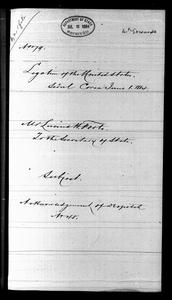 No 79.
DEPARTMENT OF STATE
JUL 18 1884
RECEIVED
Legation of the United States.
Seoul Corea June 1. 1884.
Mr. Lucius H. Foote
To the Secretary of State.
Subject.
Acknowledgment of Dispatch
No 45.